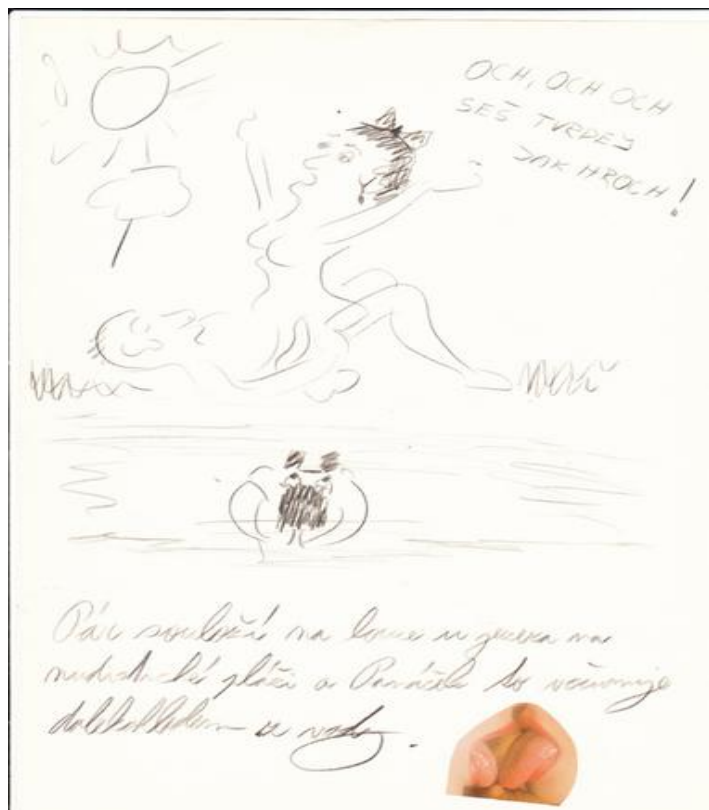 OCH, OCH OCH
SEŠ TVRDEJ
JAK HROCH!
Pár souloží na louce u jezera na
nudistické pláži a Panáček to očumuje
dalekohledem z vody.